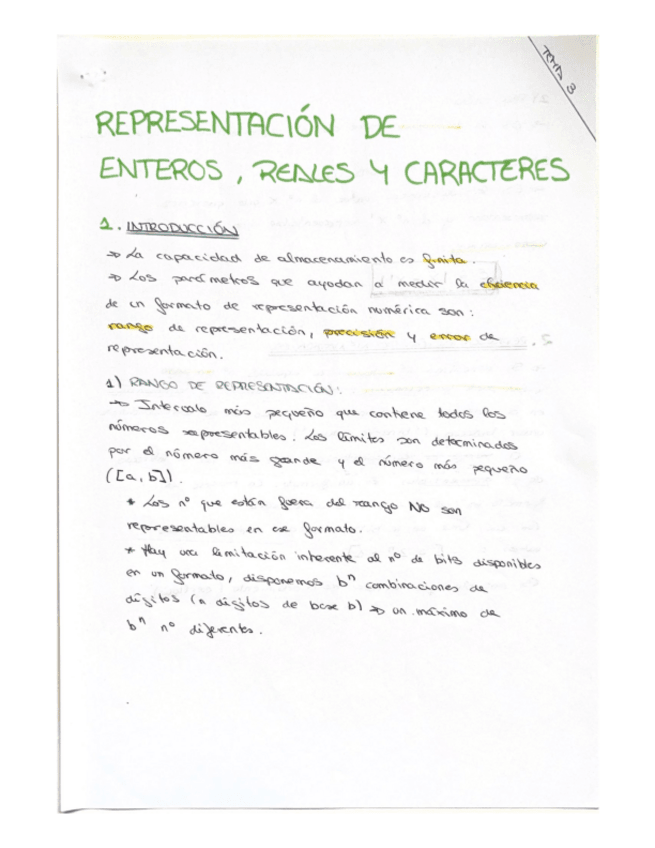 TEMA 3
REPRESENTACIÓN DE
ENTEROS, REALES Y CARACTERES
1. INTRODUCCIÓN
→ La capacidad de almacenamiento es finita.
→ Los parámetros que ayudan a medir la eficiencia
de un formato de representación numérica son:
rango de representación, precisión y error de
representación.
1) RANGO DE REPRESENTACIÓN:
→ Intervalo más pequeño que contiene todos los
números representables. Los límites son determinados
por el número más grande y el número más pequeño
([a, b]).
* Los nº que están fuera del rango NO son
representables en ese formato.
* Hay una limitación inherente al nº de bits disponibles
en un formato, disponemos bⁿ combinaciones de
dígitos (n dígitos de base b) → un máximo de
bⁿ nº diferentes.